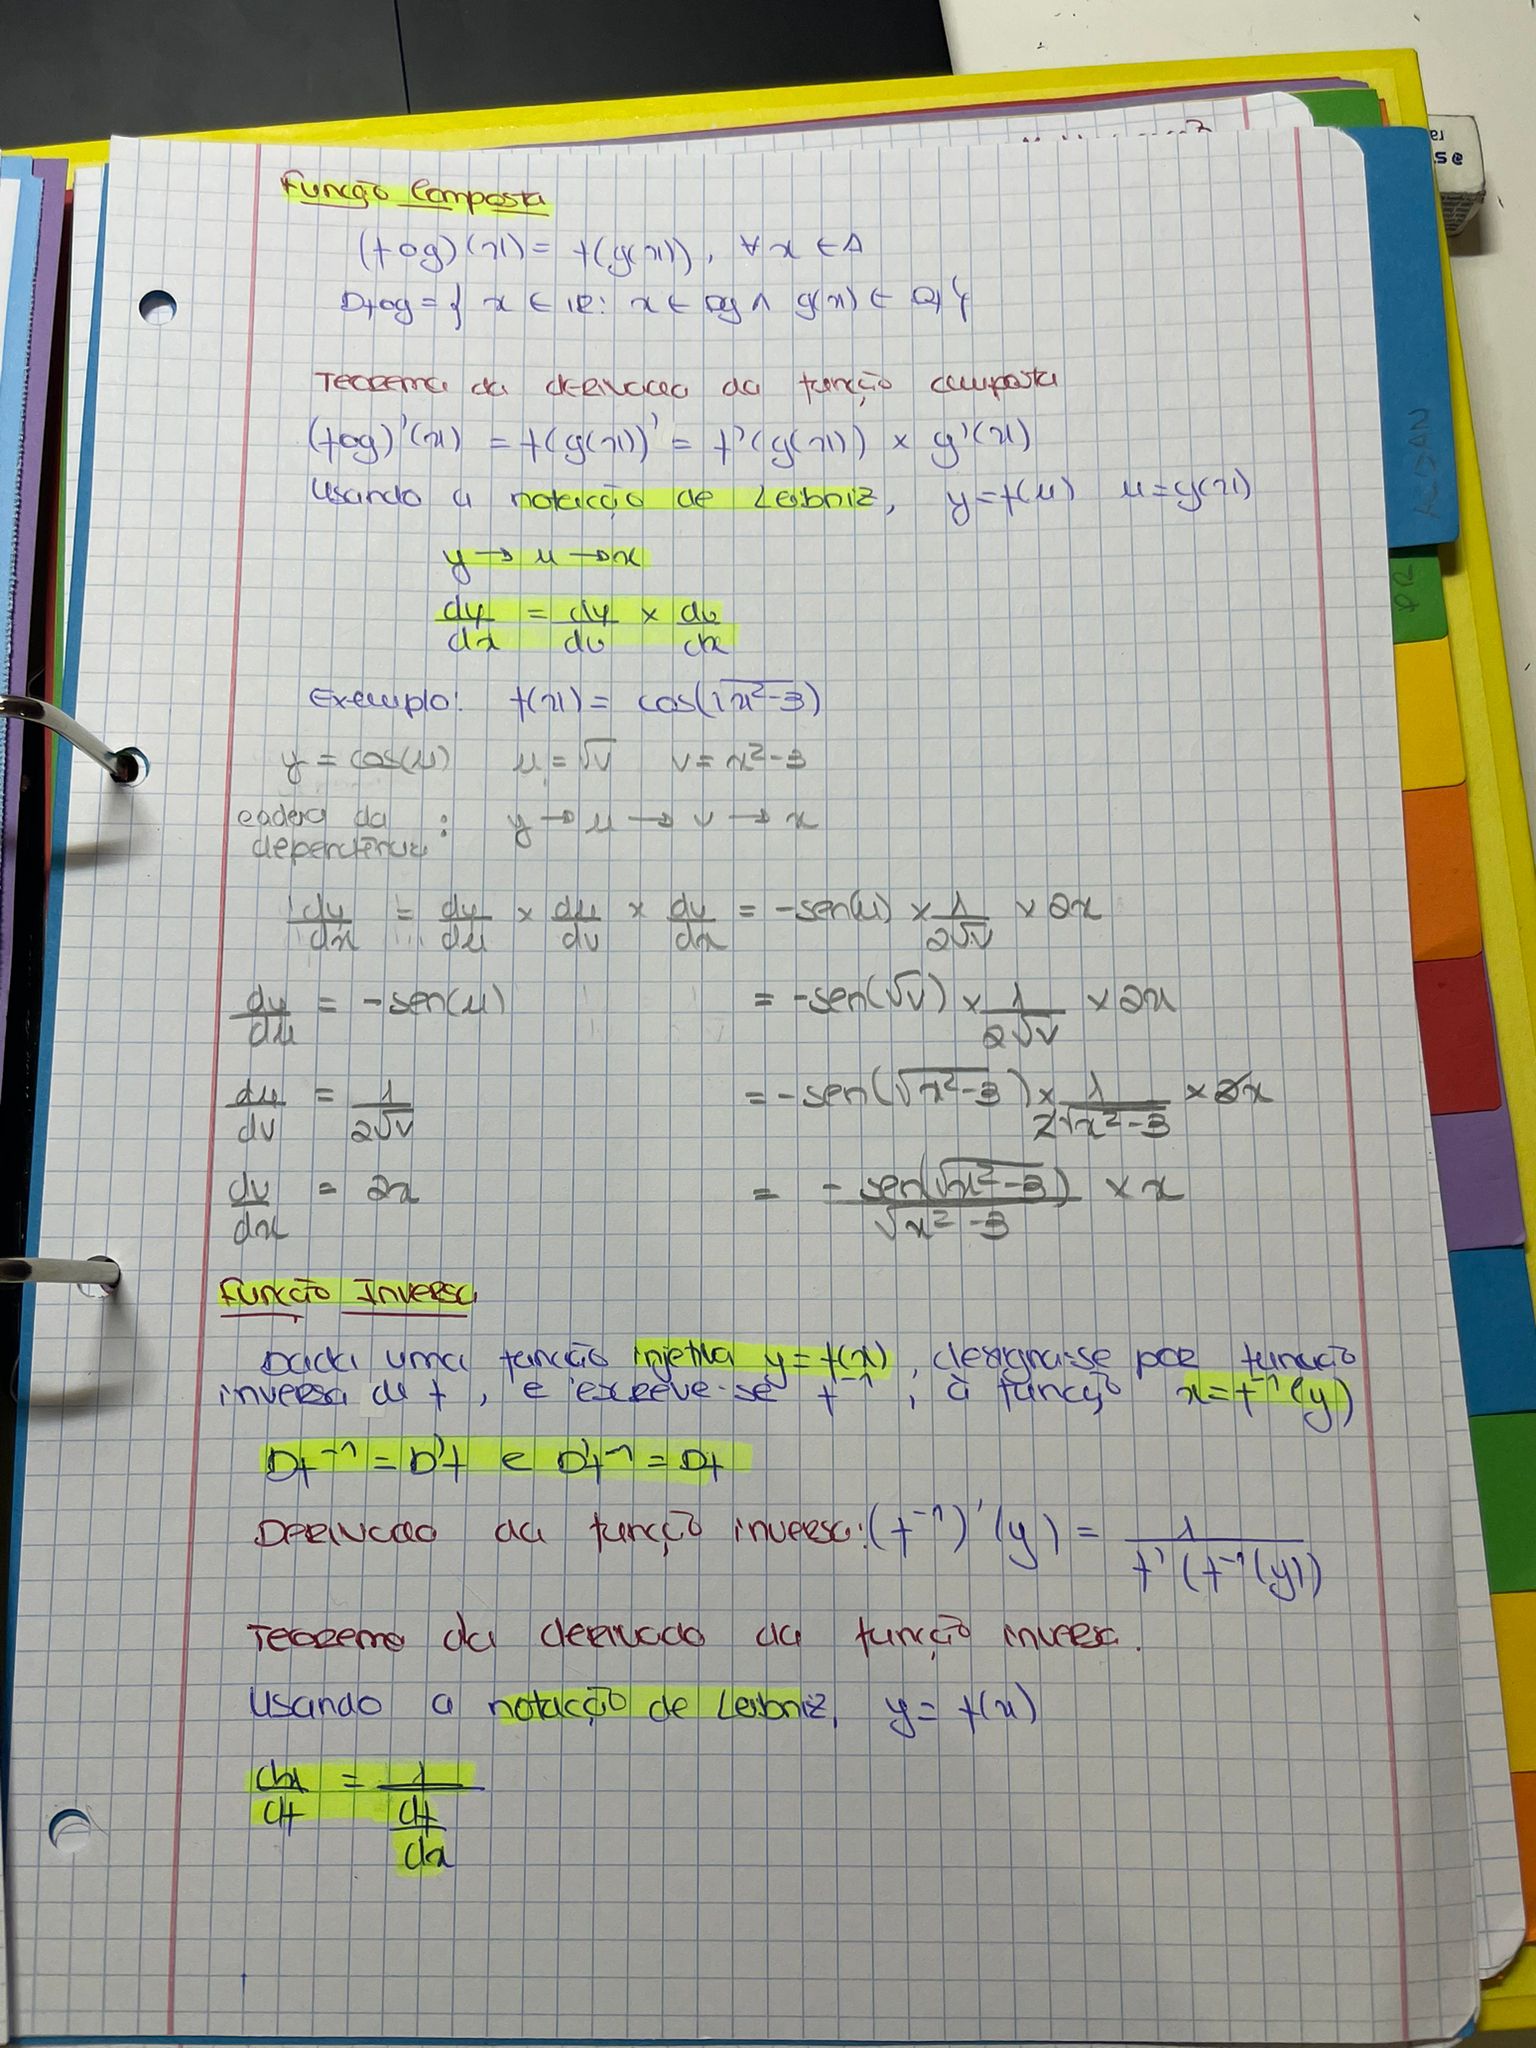 Função Composta
(fog)(x) = f(g(x)), ∀ x ∈ A
Dfog = { x ∈ IR: x ∈ Dg ∧ g(x) ∈ Df }
Teorema da derivada da função composta
(fog)'(x) = f(g(x))' = f'(g(x)) × g'(x)
Usando a notação de Leibniz, y = f(u) u = g(x)
y → u → x
dy/dx = dy/du × du/dx
Exemplo: f(x) = cos(√x²-3)
y = cos(u) u = √v v = x²-3
cadeia da
dependência : y → u → v → x
dy/dx = dy/du × du/dv × dv/dx = -sen(u) × 1/2√v × 2x
dy/du = -sen(u) = -sen(√v) × 1/2√v × 2x
du/dv = 1/2√v = -sen(√x²-3) × 1/2√x²-3 × 2x
dv/dx = 2x = -sen(√x²-3)/√x²-3 × x
Função Inversa
Dada uma função injetiva y = f(x), designa-se por função
inversa de f, e escreve-se f⁻¹, à função x = f⁻¹(y)
Df⁻¹ = D'f e D'f⁻¹ = Df
Derivada da função inversa: (f⁻¹)'(y) = 1/f'(f⁻¹(y))
Teorema da derivada da função inversa.
Usando a notação de Leibniz, y = f(x)
dx/df = 1/(df/dx)